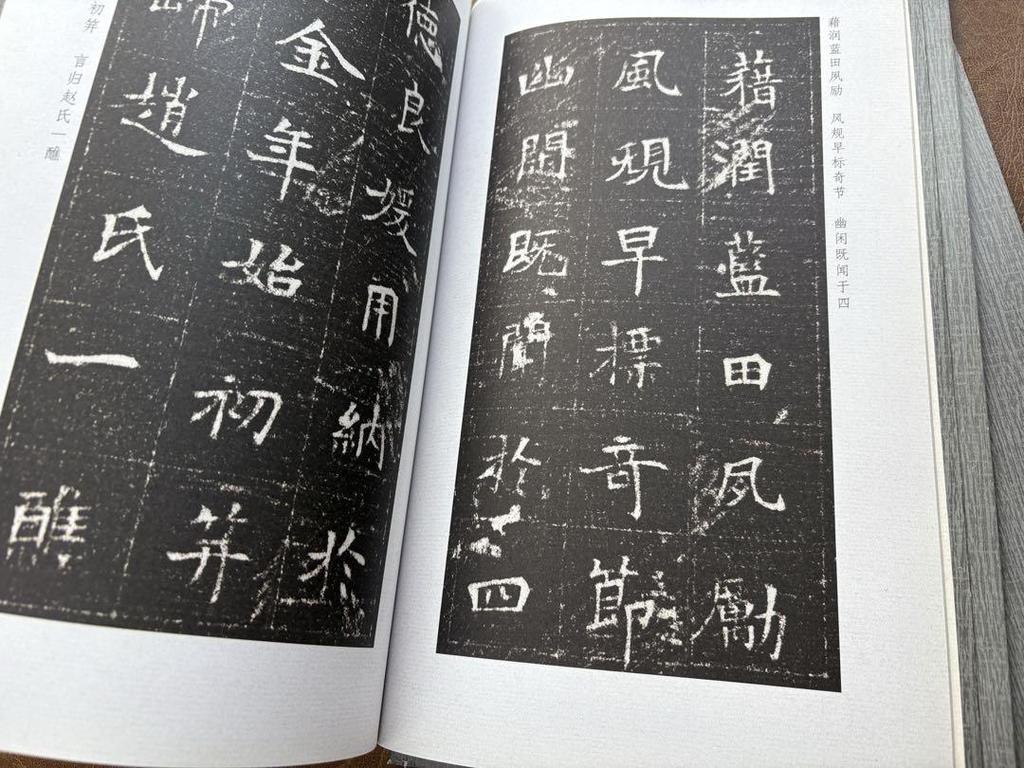 藉润蓝田夙励 风规早标奇节 幽闲既闻于四
藉潤藍田夙勵
風規早標奇節
幽閒既聞於四
德良媛用納於
金年始初笄
歸趙氏一醮
初笄 言归赵氏一醮